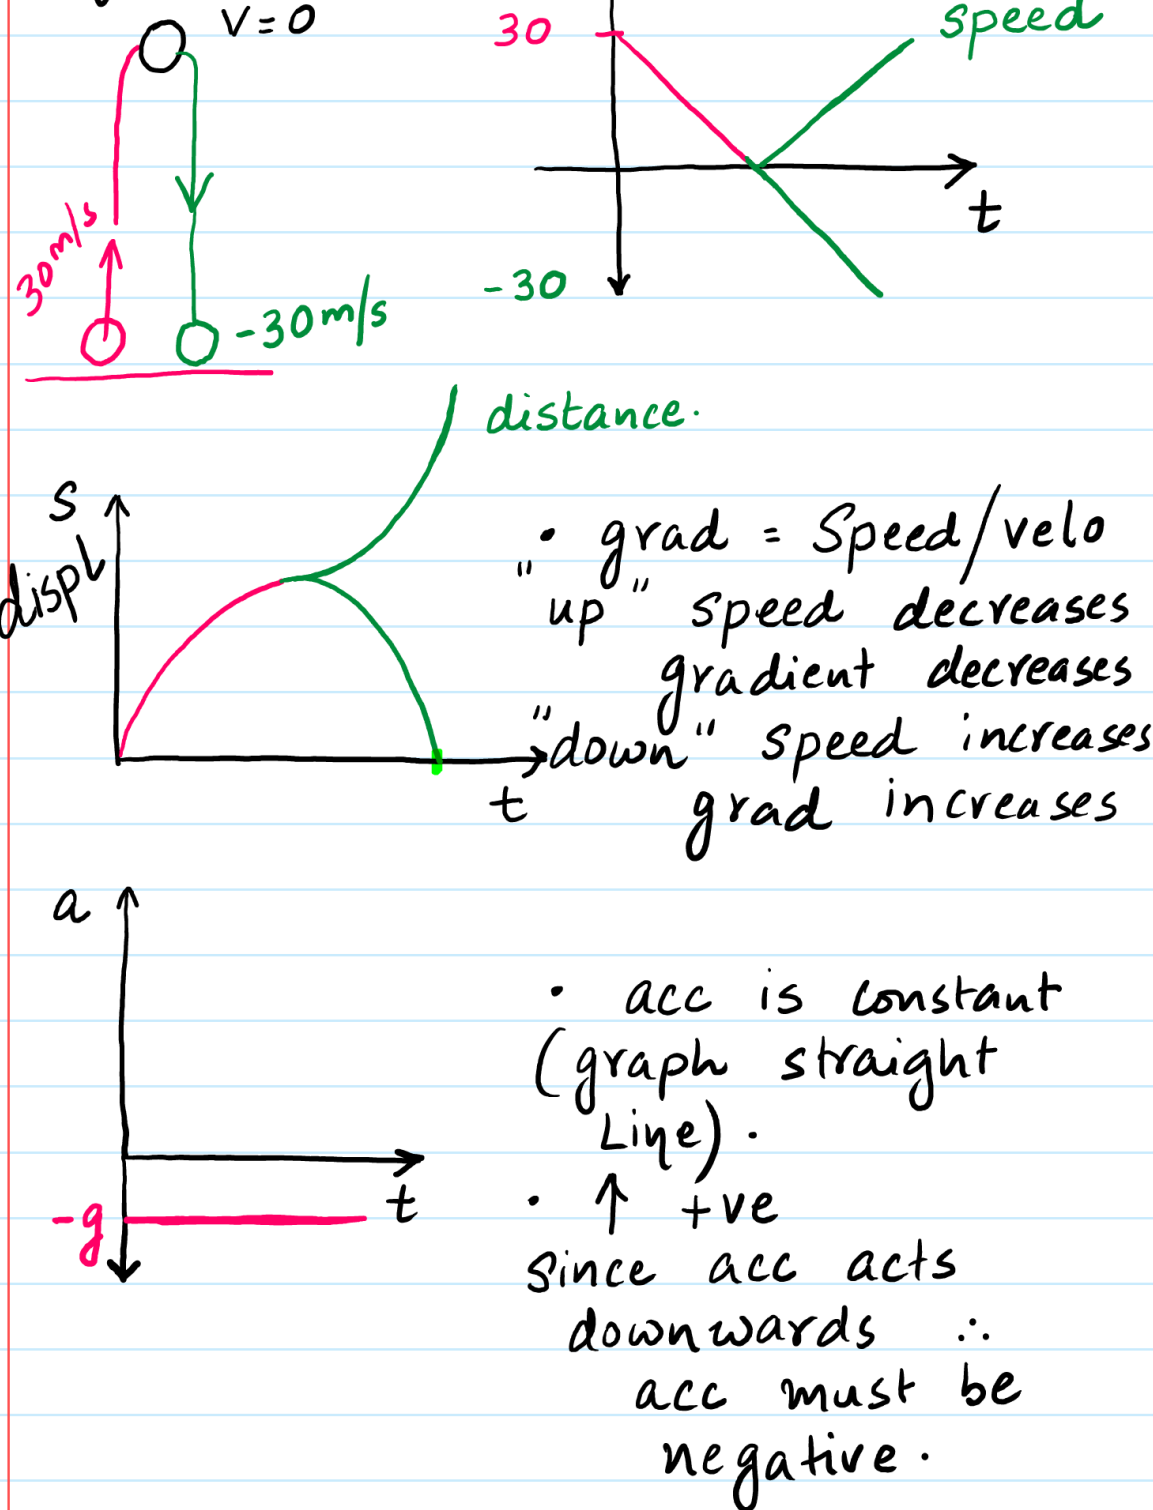 v = 0
30
speed
t
-30
30 m/s
-30 m/s
distance.
s
displ
t
• grad = Speed/velo
"up" speed decreases
gradient decreases
"down" speed increases
grad increases
a
t
-g
• acc is constant
(graph straight
Line).
• ↑ +ve
since acc acts
downwards ∴
acc must be
negative.